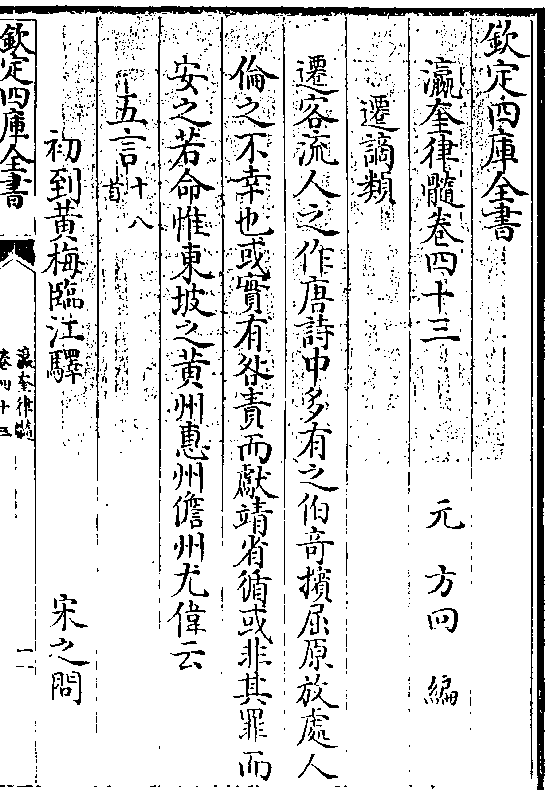 欽定四庫全書
瀛奎律髓卷四十三
元 方回 編
遷謫類
遷客流人之作唐詩中多有之伯竒擯屈原放處人
倫之不幸也或實有咎責而獻靖省循或非其罪而
安之若命惟東坡之黄州惠州儋州尤偉云
五言十八首
初到黄梅臨江驛 宋之問
欽定四庫全書
瀛奎律髓
卷四十三
一